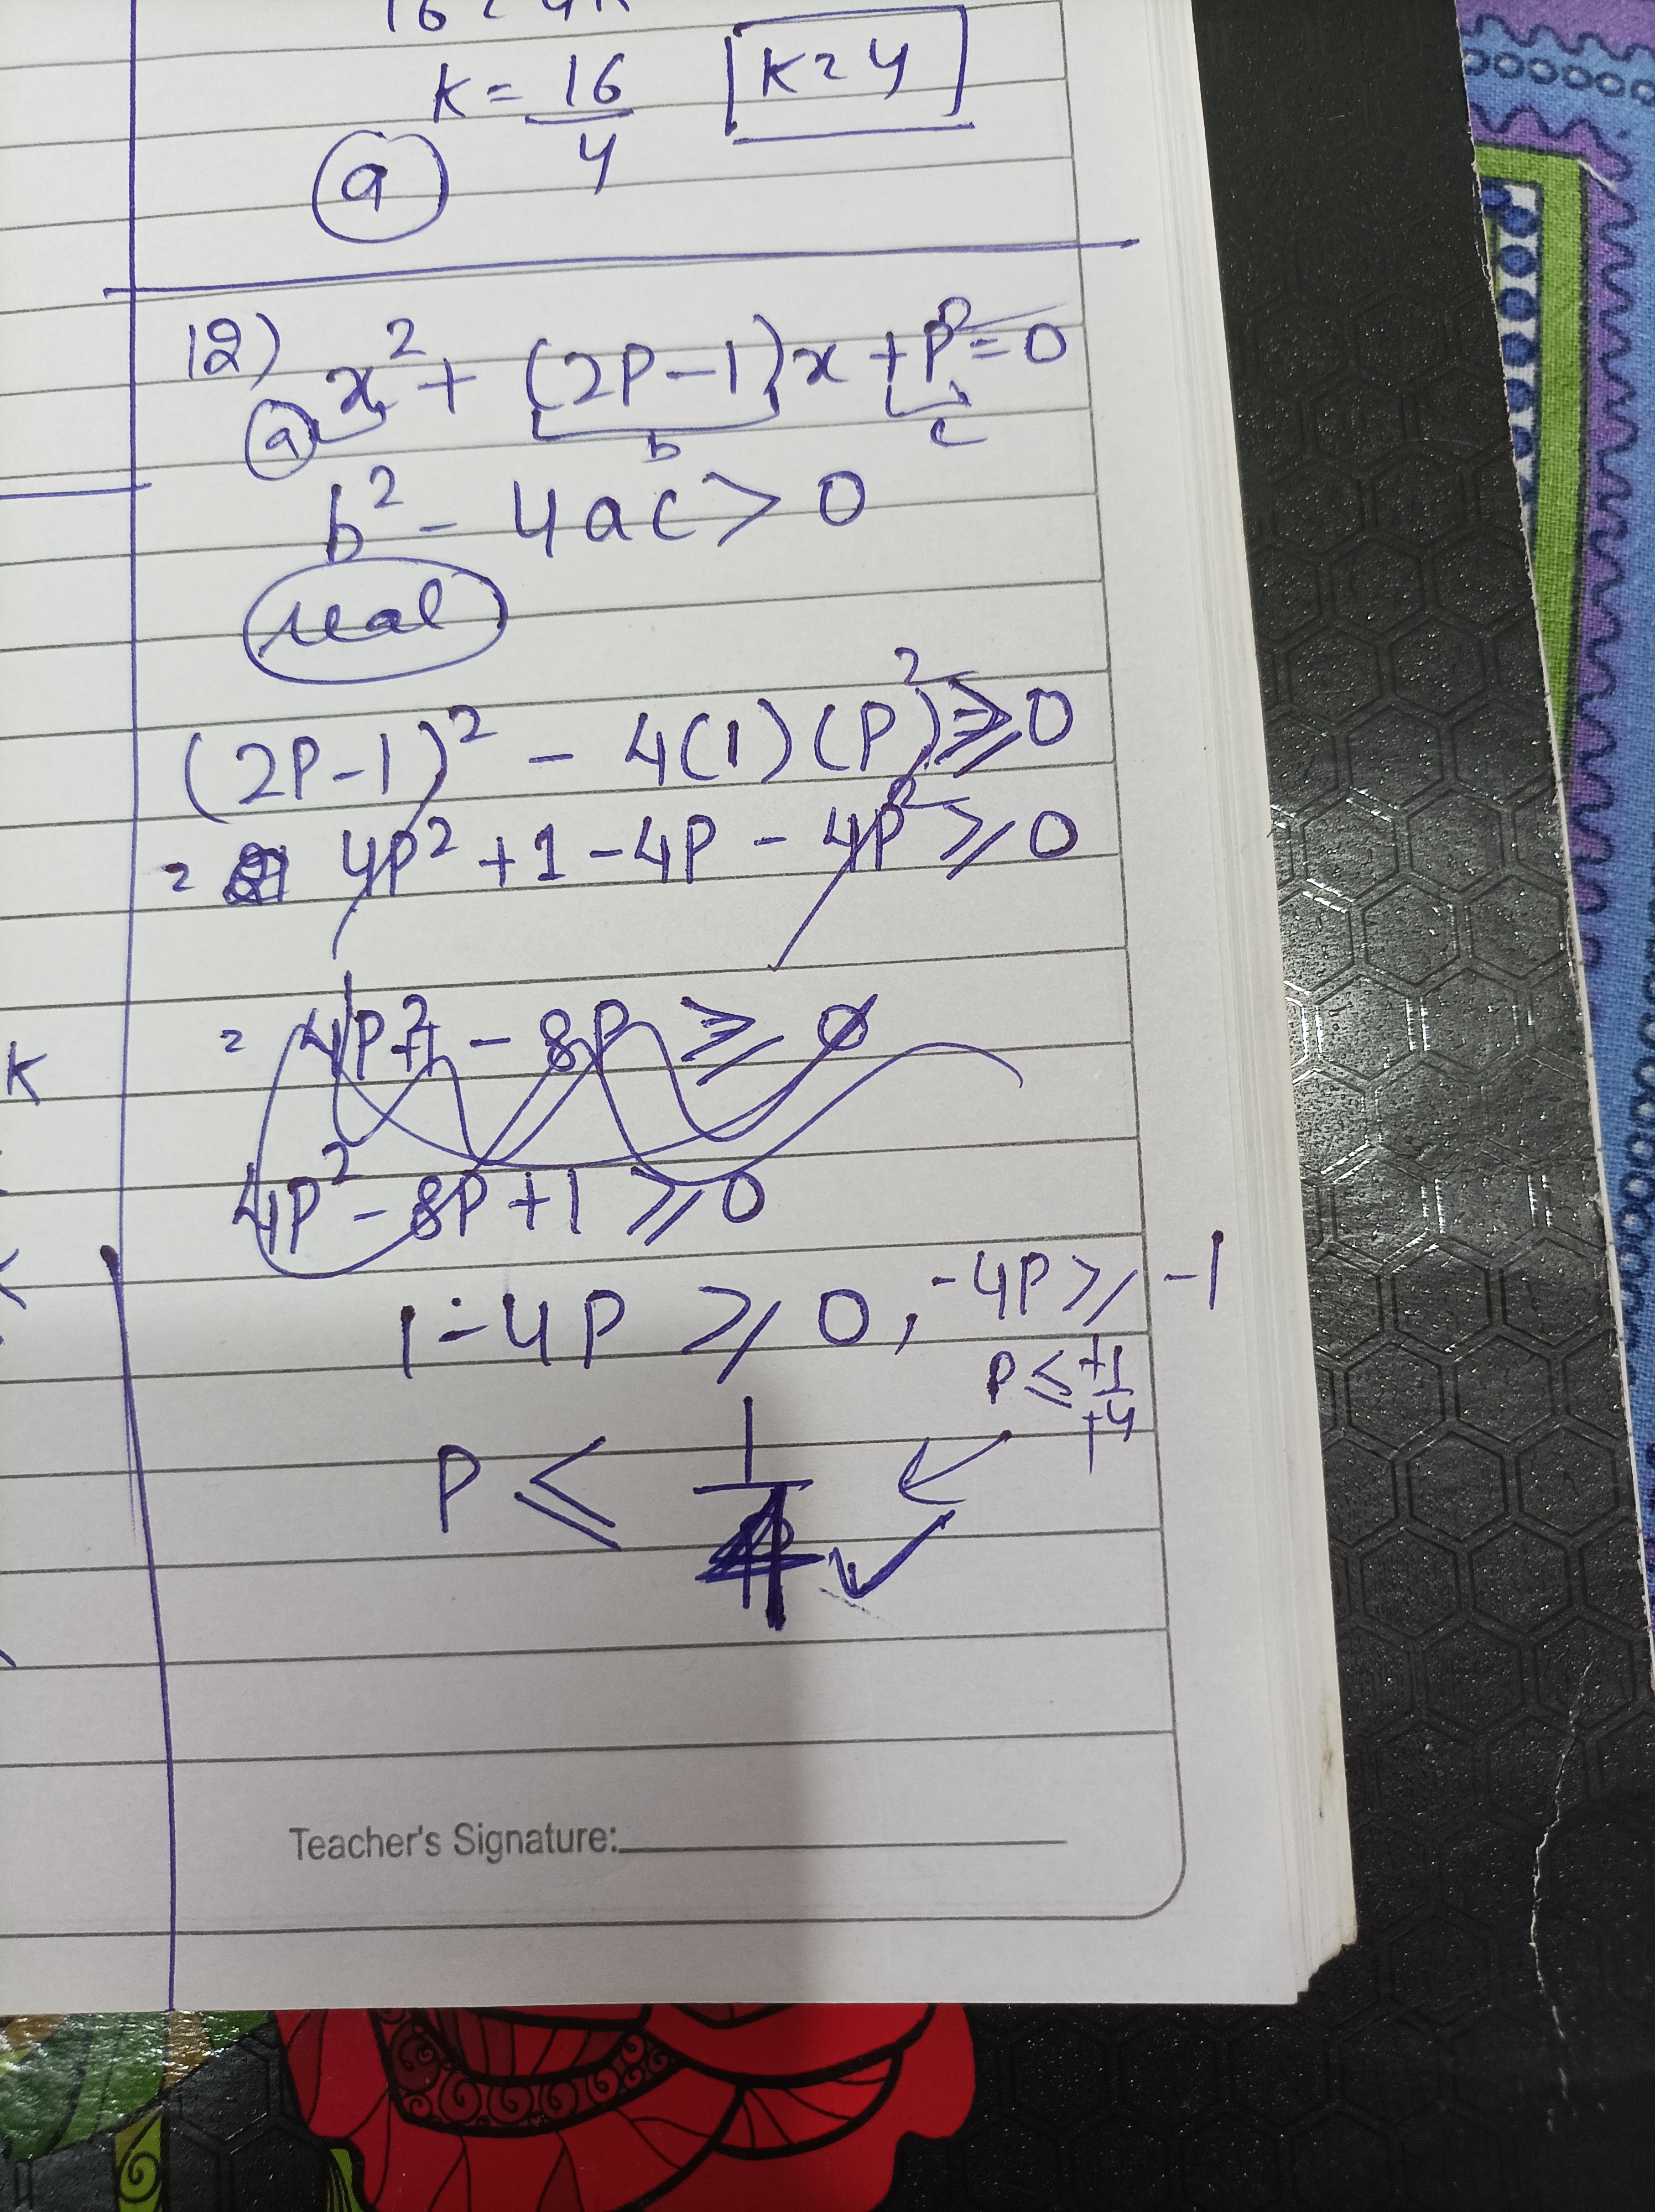 K = 16/4 K = 4
a
12) x² + (2P-1)x + P² = 0
a b c
b² - 4ac > 0
real
(2P-1)² - 4(1)(P²) ≥ 0
= 4P² + 1 - 4P - 4P² ≥ 0
= 4P²+1 - 8P ≥ 0
K
4P² - 8P + 1 ≥ 0
1 - 4P ≥ 0, -4P ≥ -1
P ≤ +1/+4
P ≤ 1/4
Teacher's Signature: